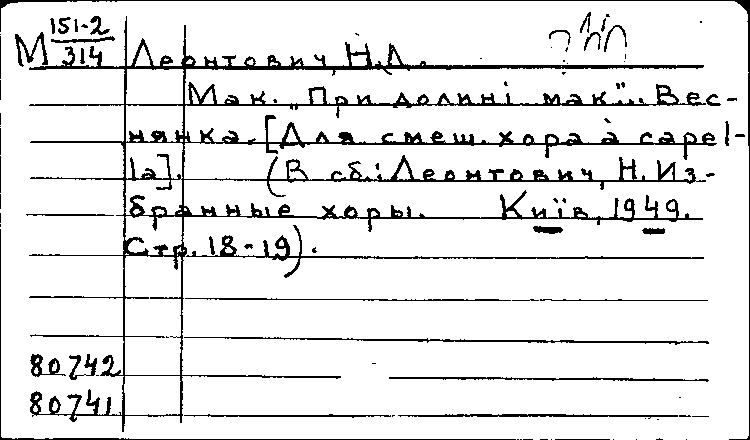 М 151-2/314 Леонтович, Н.Д.
Мак. „При долині мак"... Вес-
нянка. [Для смеш. хора а capel-
la]. (В сб.: Леонтович, Н. Из-
бранные хоры. Київ, 1949.
Стр. 18-19).
80742
80741